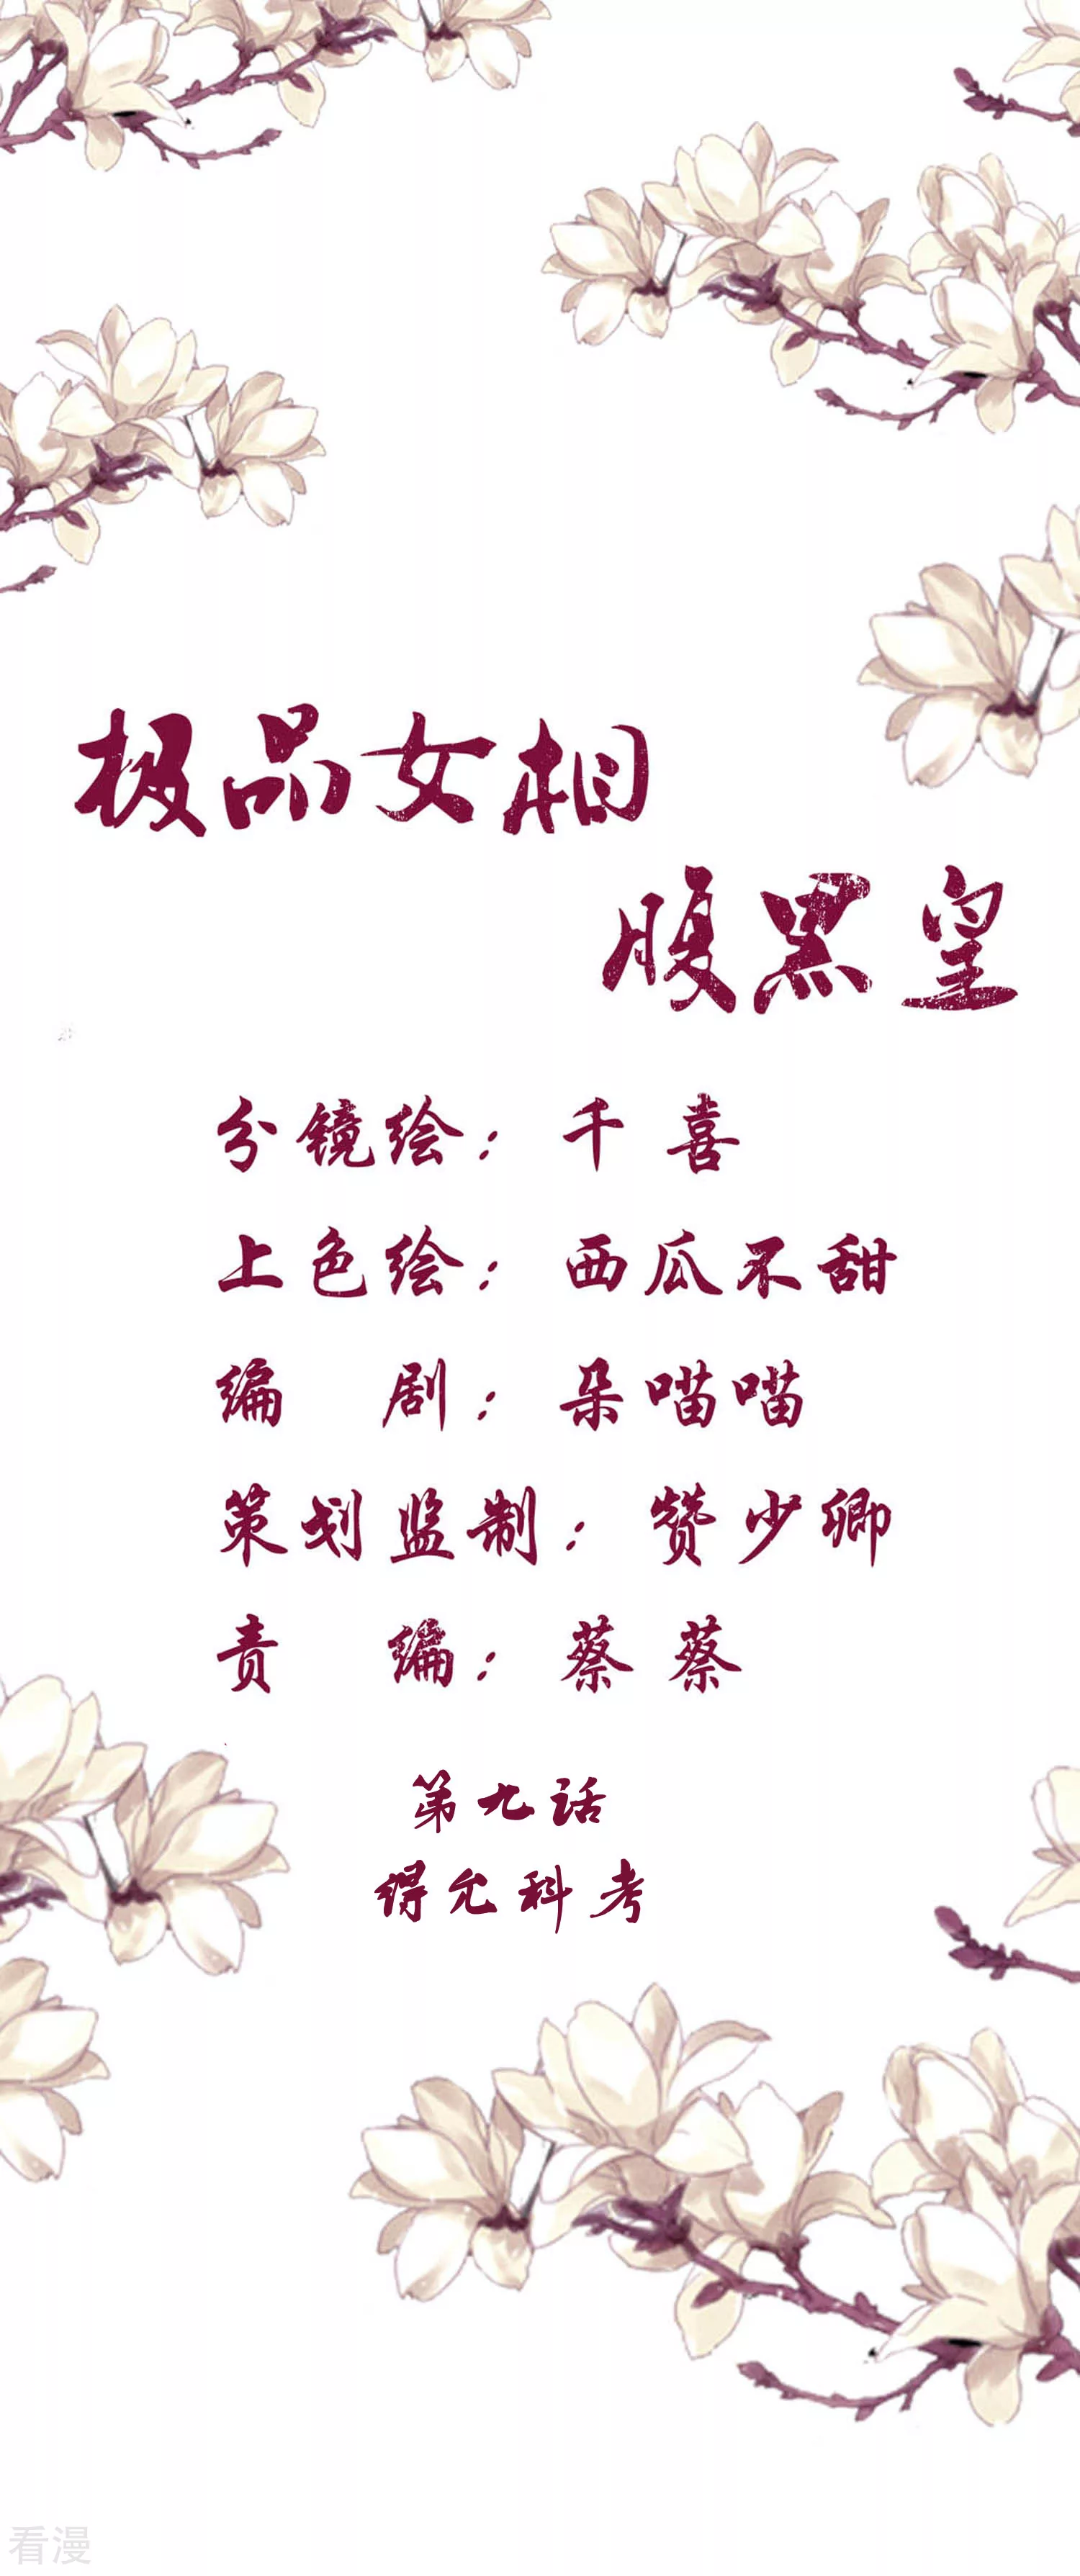 极品女相
腹黑皇
分镜绘：千喜
上色绘：西瓜不甜
编 剧：朵喵喵
策划监制：赞少卿
责 编：蔡蔡
第九话
得允科考
看漫